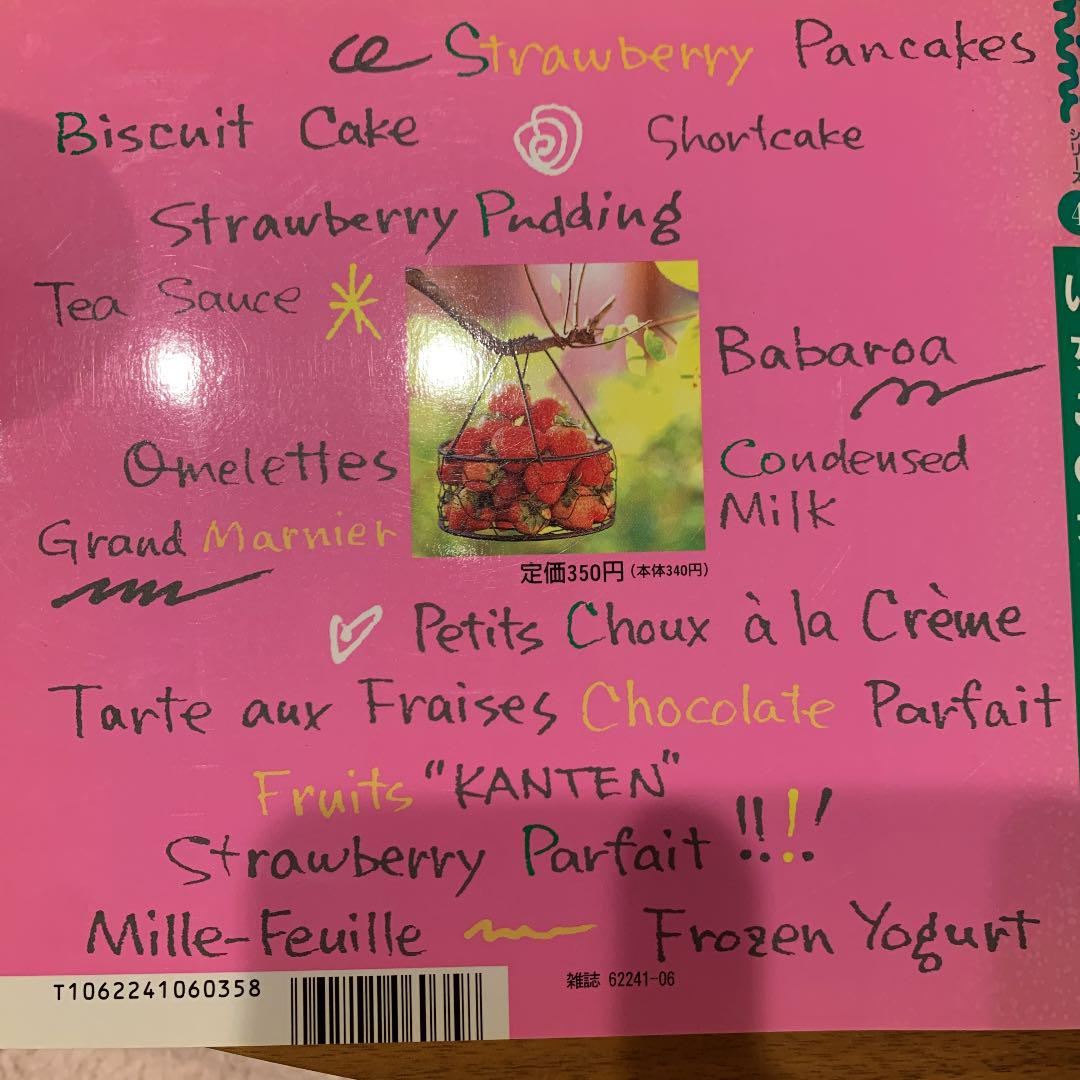 Strawberry Pancakes
Biscuit Cake Shortcake
Strawberry Pudding
Tea Sauce
Babaroa
Omelettes
Condensed
Milk
Grand Marnier
定価350円(本体340円)
Petits Choux à la Crème
Tarte aux Fraises Chocolate Parfait
Fruits "KANTEN"
Strawberry Parfait !!!!
Mille-Feuille Frozen Yogurt
T1062241060358
雑誌 62241-06
シリーズ